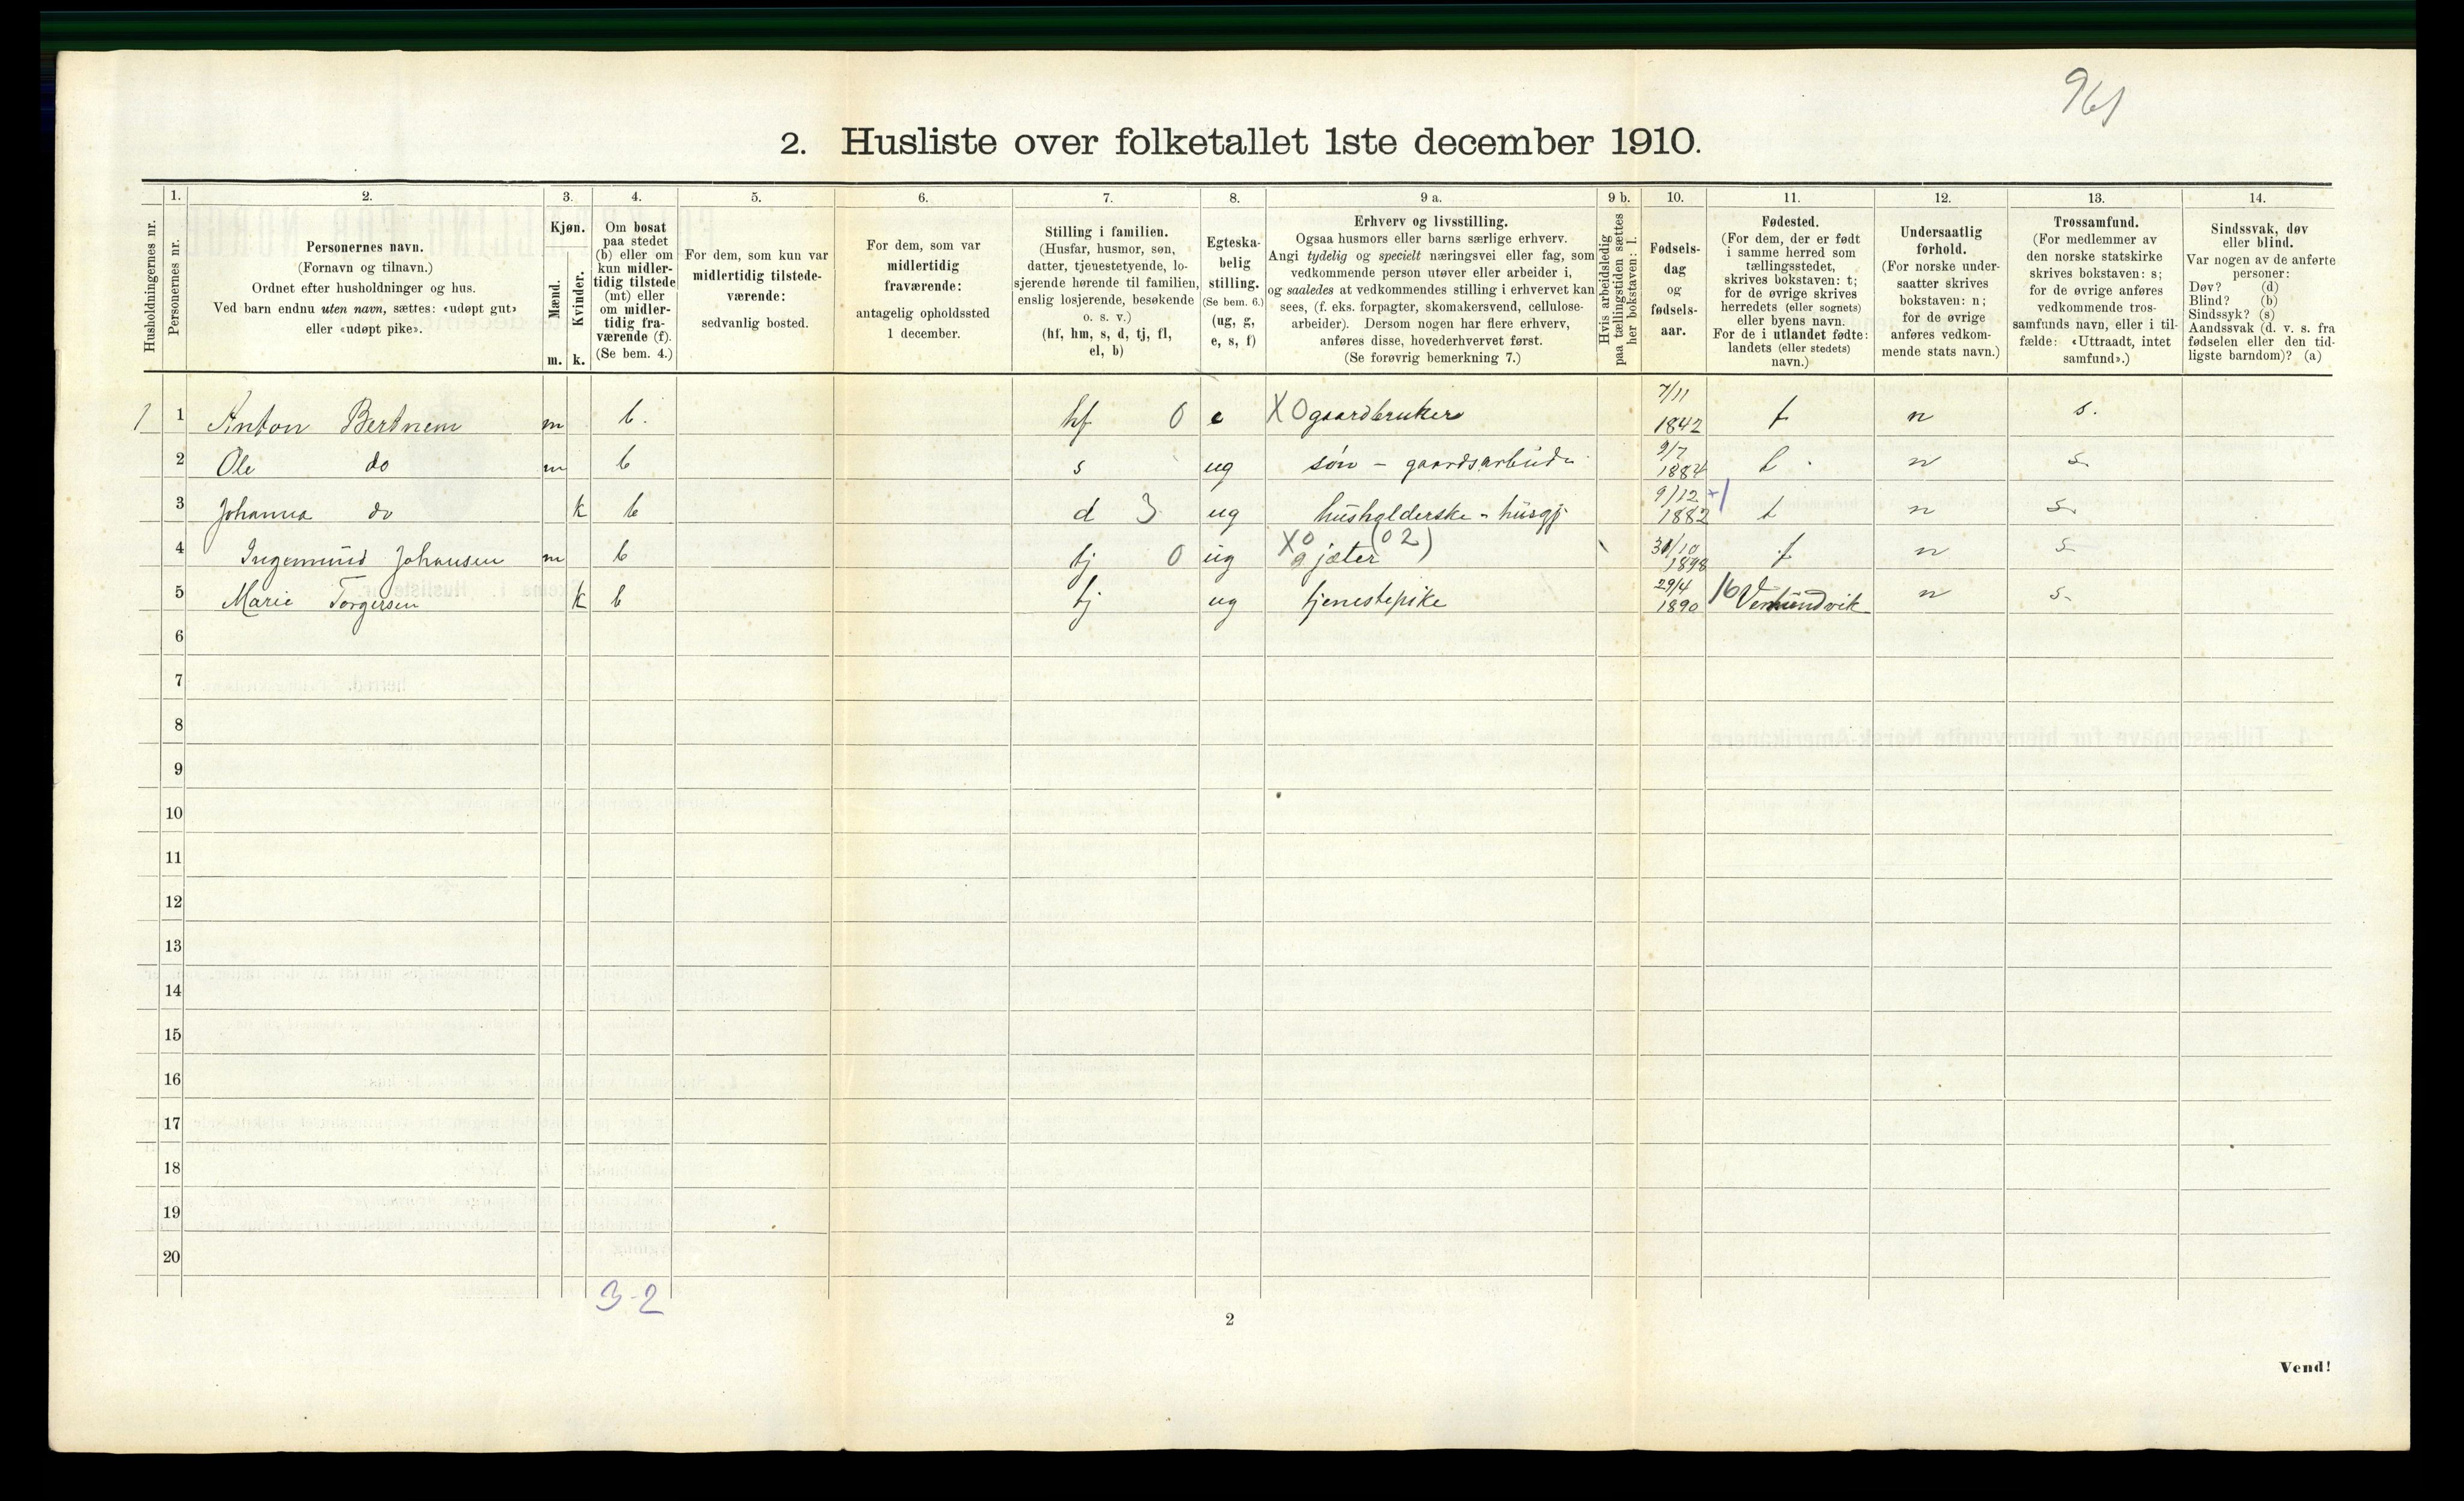 961
2. Husliste over folketallet 1ste december 1910.
Husholdningernes nr.
1. Personernes nr.
2. Personernes navn.
(Fornavn og tilnavn.)
Ordnet efter husholdninger og hus.
Ved barn endnu uten navn, sættes: «udøpt gut»
eller «udøpt pike».
3. Kjøn.
Mænd. m.
Kvinder. k.
4. Om bosat
paa stedet
(b) eller om
kun midler-
tidig tilstede
(mt) eller
om midler-
tidig fra-
værende (f).
(Se bem. 4.)
5. For dem, som kun var
midlertidig tilstede-
værende:
sedvanlig bosted.
6. For dem, som var
midlertidig
fraværende:
antagelig opholdssted
1 december.
7. Stilling i familien.
(Husfar, husmor, søn,
datter, tjenestetyende, lo-
sjerende hørende til familien,
enslig losjerende, besøkende
o. s. v.)
(hf, hm, s, d, tj, fl,
el, b)
8. Egteska-
belig
stilling.
(Se bem. 6.)
(ug, g,
e, s, f)
9 a. Erhverv og livsstilling.
Ogsaa husmors eller barns særlige erhverv.
Angi tydelig og specielt næringsvei eller fag, som
vedkommende person utøver eller arbeider i,
og saaledes at vedkommendes stilling i erhvervet kan
sees, (f. eks. forpagter, skomakersvend, cellulose-
arbeider). Dersom nogen har flere erhverv,
anføres disse, hovederhvervet først.
(Se forøvrig bemerkning 7.)
9 b. Hvis arbeidsledig
paa tællingstiden sættes
her bokstaven: l.
10. Fødsels-
dag
og
fødsels-
aar.
11. Fødested.
(For dem, der er født
i samme herred som
tællingsstedet,
skrives bokstaven: t;
for de øvrige skrives
herredets (eller sognets)
eller byens navn.
For de i utlandet fødte:
landets (eller stedets)
navn.)
12. Undersaatlig
forhold.
(For norske under-
saatter skrives
bokstaven: n;
for de øvrige
anføres vedkom-
mende stats navn.)
13. Trossamfund.
(For medlemmer av
den norske statskirke
skrives bokstaven: s;
for de øvrige anføres
vedkommende tros-
samfunds navn, eller i til-
fælde: «Uttraadt, intet
samfund».)
14. Sindssvak, døv
eller blind.
Var nogen av de anførte
personer:
Døv? (d)
Blind? (b)
Sindssyk? (s)
Aandssvak (d. v. s. fra
fødselen eller den tid-
ligste barndom)? (a)
1 1 Anton Bertnem m b. hf 0 e X O gaardbruker 7/11 1842 t n s.
2 Ole do m b s ug søn - gaardsarbeide 9/7 1884 t n s.
3 Johanna do k b d 3 ug husholderske - husgj. 9/12 1882 t n s.
4 Ingemund Johansen m b tj 0 ug X O gjæter (02) 31/10 1898 t n s
5 Marie Torgersen k b tj ug tjenestepike 29/4 1890 16 Vemundvik n s.
6
7
8
9
10
11
12
13
14
15
16
17
18
19
20
3-2
2
Vend!